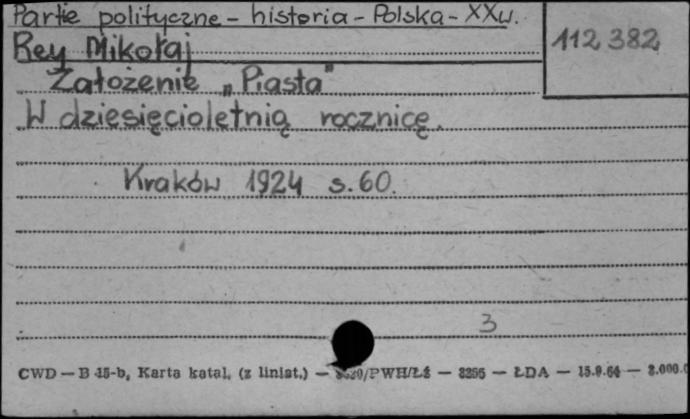 Partie polityczne - historia - Polska - XXw.
Rey Mikołaj
112 382
Założenie „Piasta"
W dziesięcioletnią rocznicę.
Kraków 1924 s. 60.
3
CWD — B 45-b, Karta katal. (z liniat.) — /PWH/Łż — 3256 — ŁDA — 15.9.64 — 2.000.0